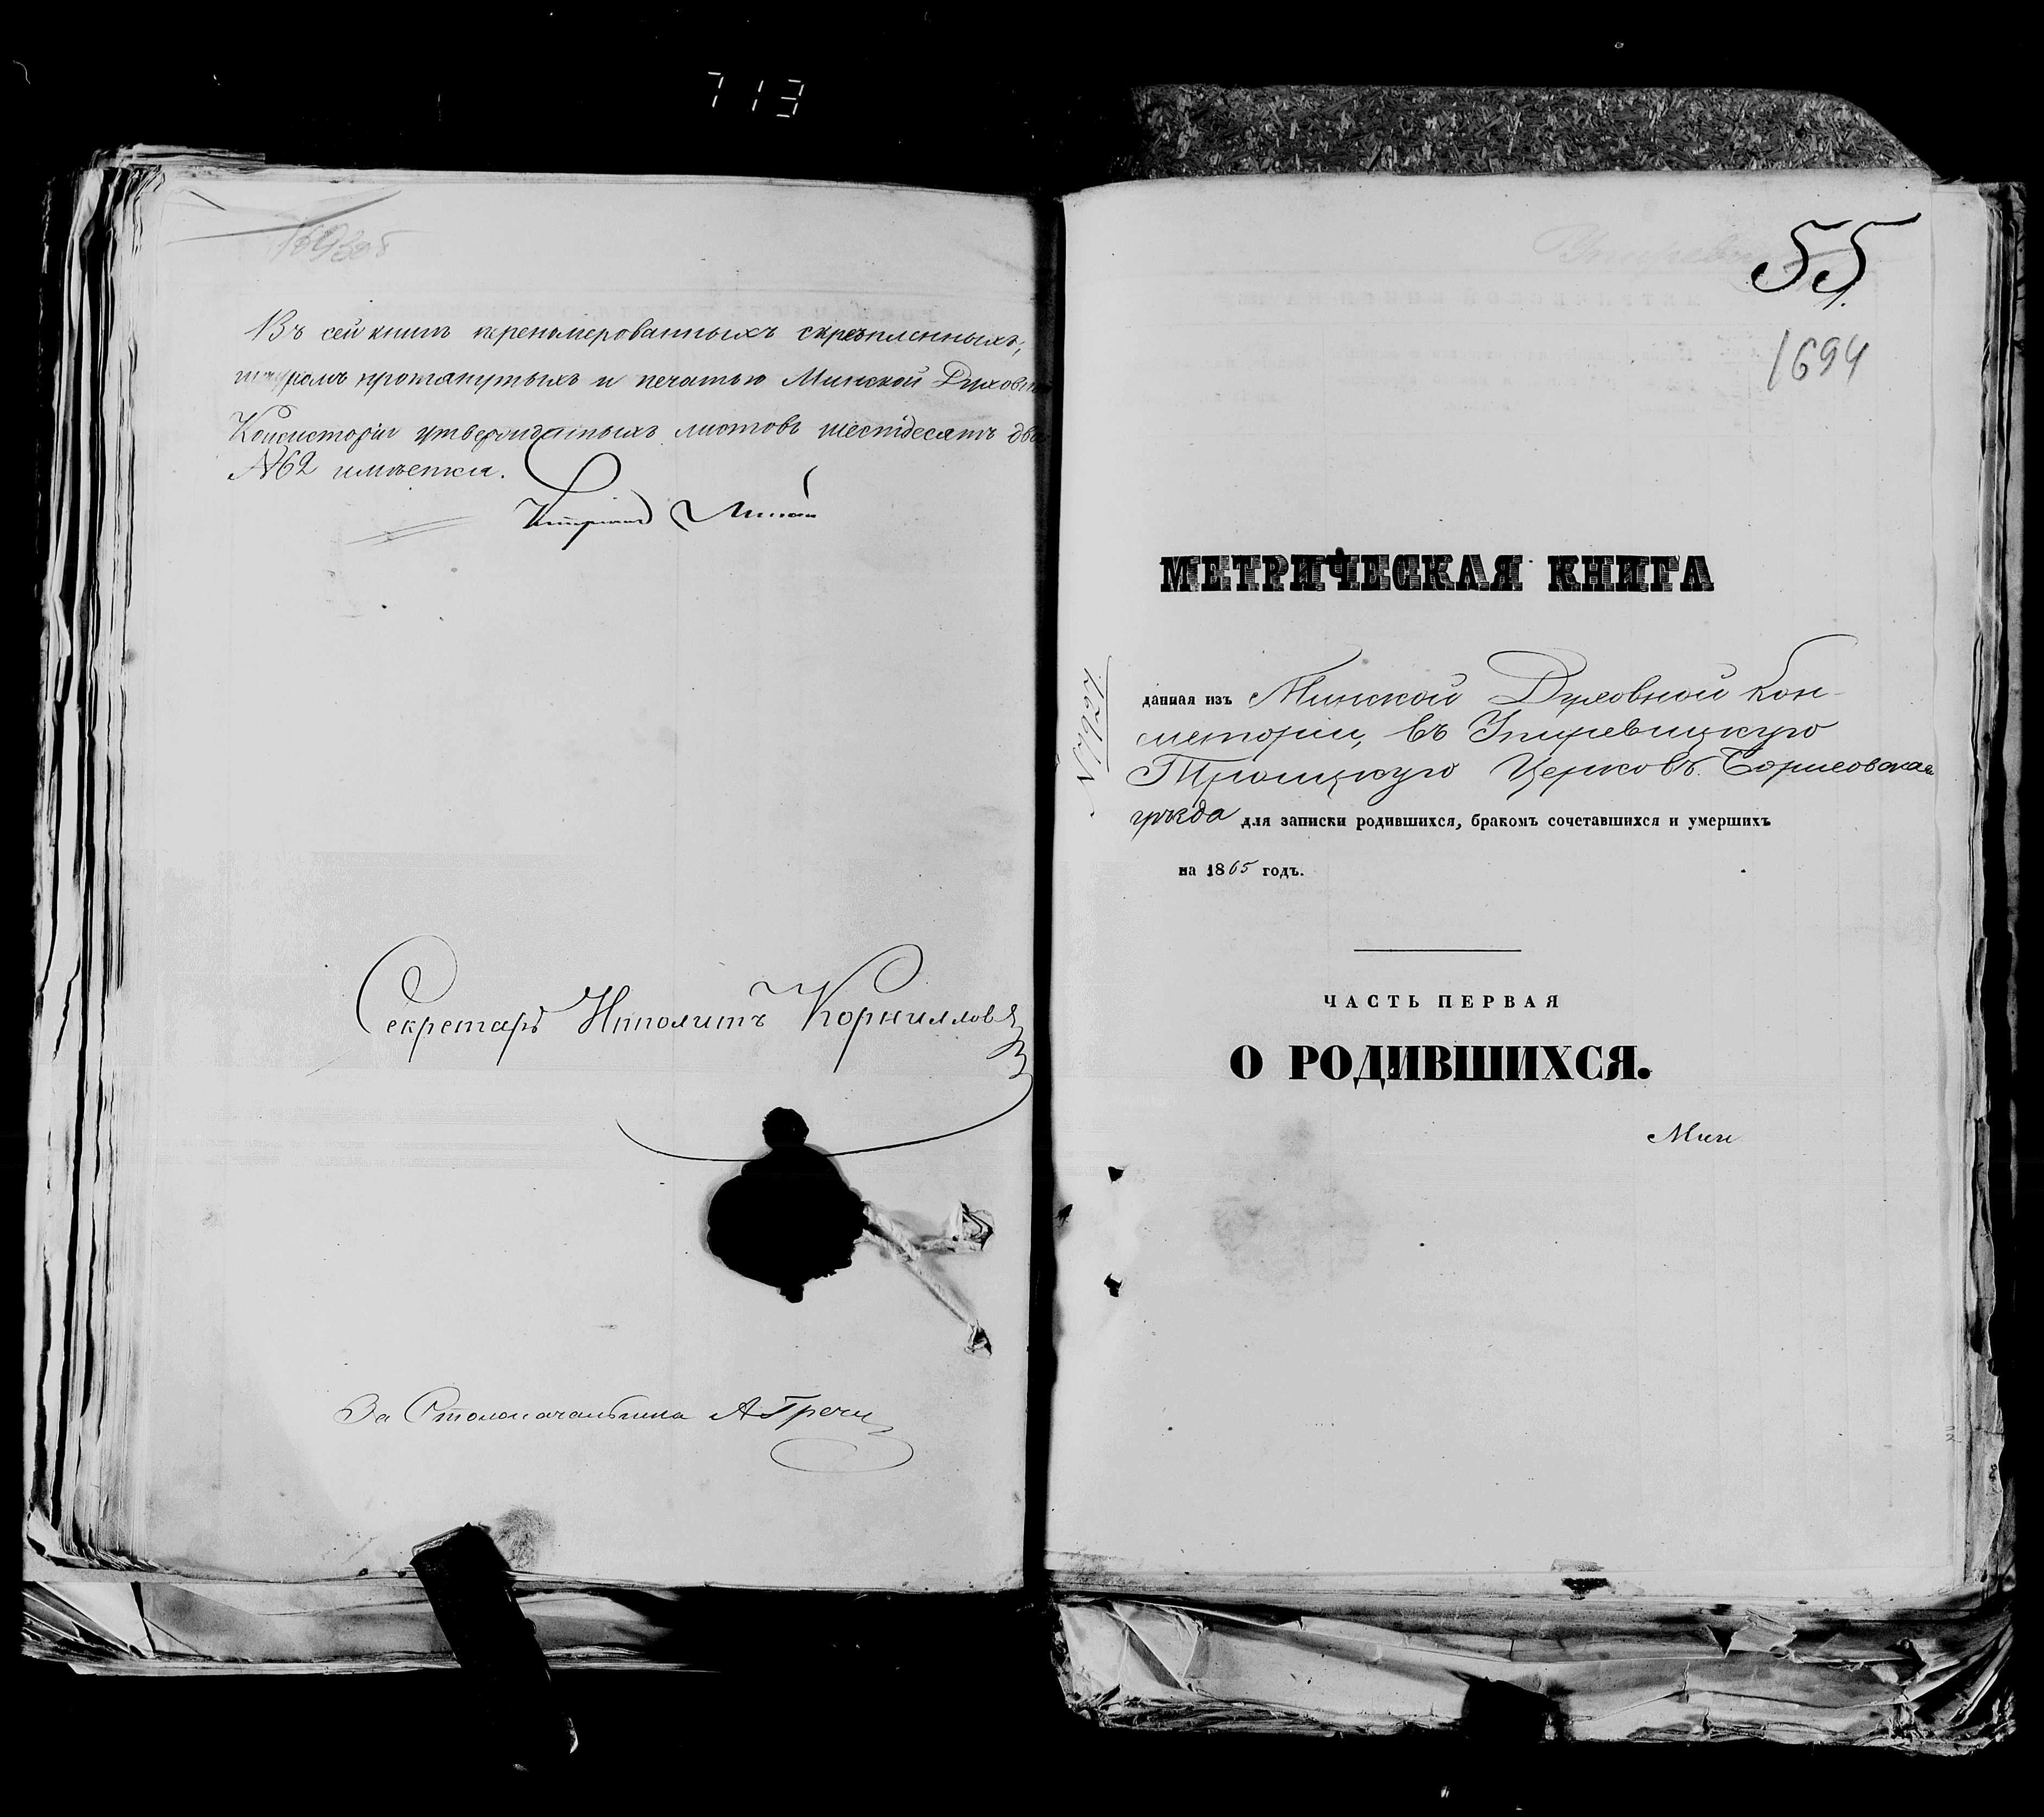 713
Въ сей книгѣ перенумерованныхъ скрѣпленныхъ,
шнуромъ протянутыхъ и печатью Минской Духовн
Консисторіи утвержденныхъ листовъ шестдесятъ два
№62 имѣется.
Секретарь Ипполитъ Корнилловъ
За Столоначальника А Гречи
55
1694
МЕТРИЧЕСКАЯ КНИГА
данная изъ Минской Духовной Кон-
систоріи, въ Упиревицкую
Троицкую Церковь Борисовскаго
уѣзда для записки родившихся, бракомъ сочетавшихся и умершихъ
на 1865 годъ.
ЧАСТЬ ПЕРВАЯ
О РОДИВШИХСЯ.
Мин